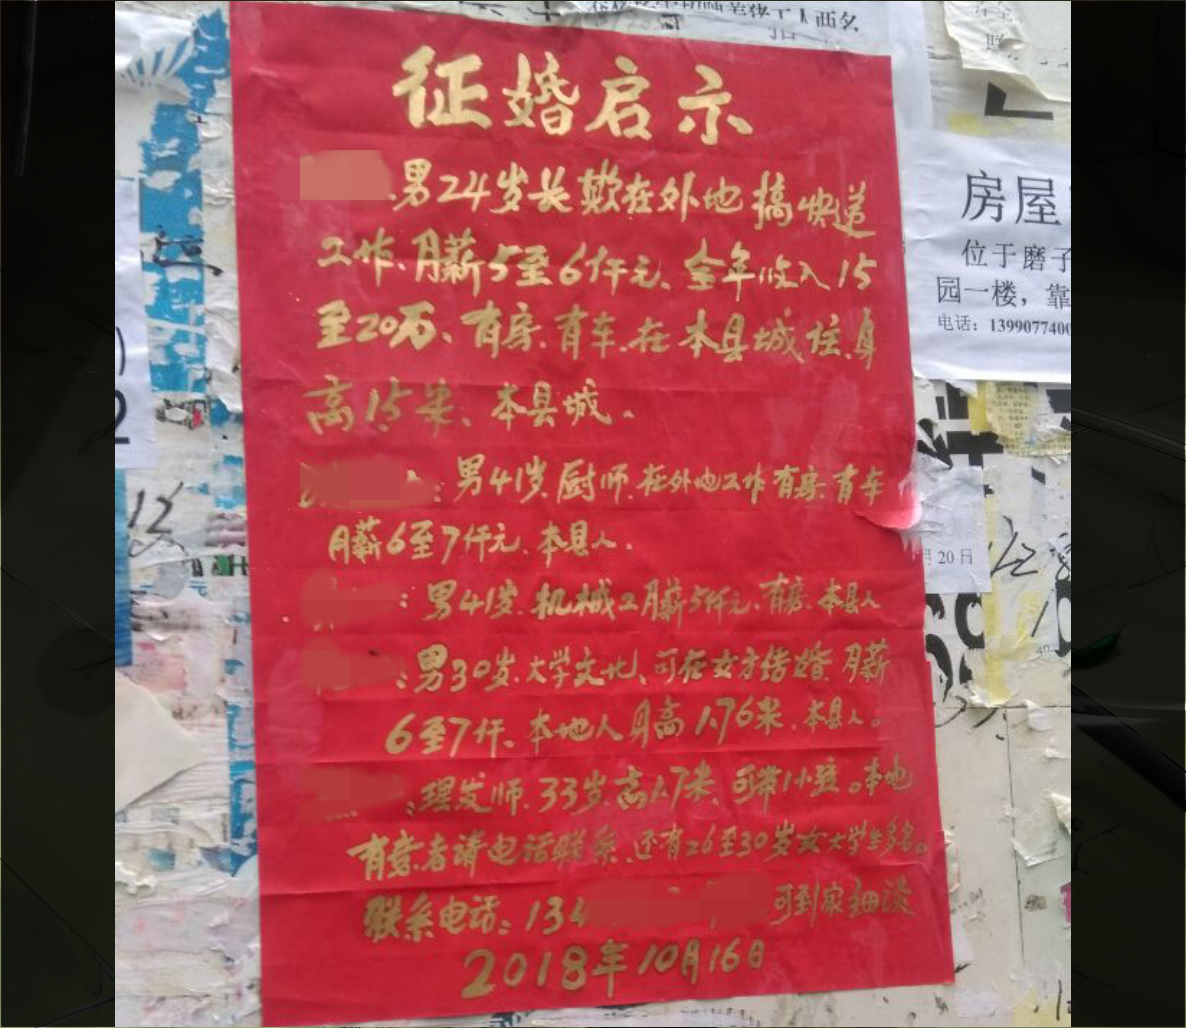 征婚启示
男24岁长期在外地搞快递
工作、月薪5至6仟元、全年收入15
至20万、有房、有车、在本县城住、身
高1.5米、本县城。
:男41岁、厨师、在外地工作有房、有车
月薪6至7仟元、本县人.
:男41岁、机械工月薪5仟元、有房、本县人
:男30岁、大学文化、可在女方结婚、月薪
6至7仟、本地人身高1.76米、本县人。
:理发师、33岁、高1.7米、可带1小孩。本地
有意者请电话联系、还有26至30岁女大学生多名。
联系电话:134 可到家细谈
2018年10月16日
房屋
位于磨子
园一楼，靠
电话：1399077400
月20日